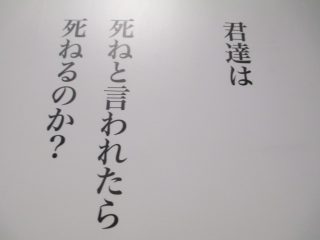 君達は
死ねと言われたら
死ねるのか?